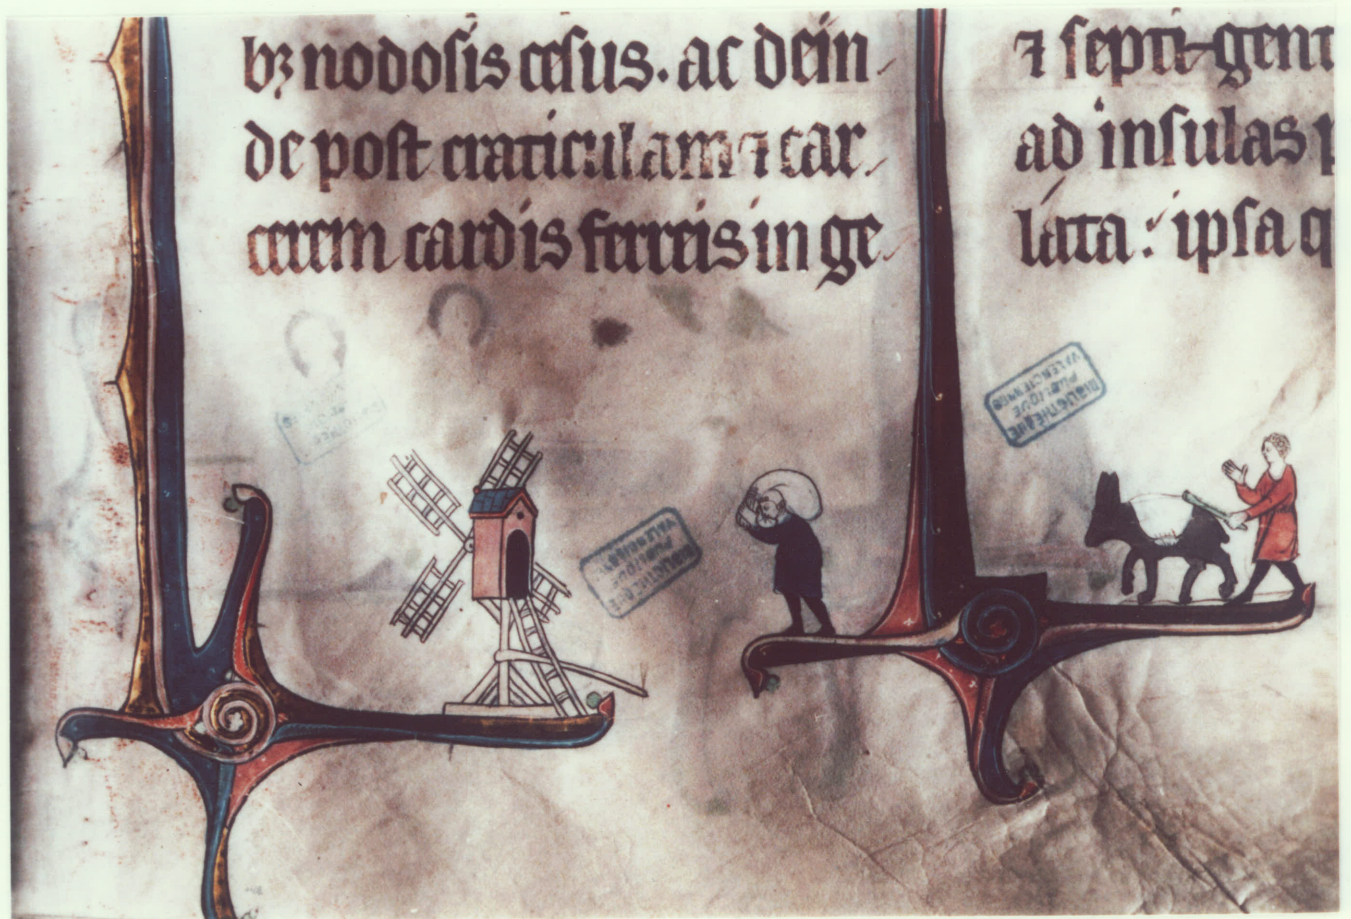 bꝫ nodosis cesus. ac dein
de post craticulam ⁊ car
cerem cardis ferreis in ge
⁊ septi gent
ad insulas p
lata : ipsa q
BIBLIOTHÈQUE
PUBLIQUE
VALENCIENNES
BIBLIOTHÈQUE
PUBLIQUE
VALENCIENNES